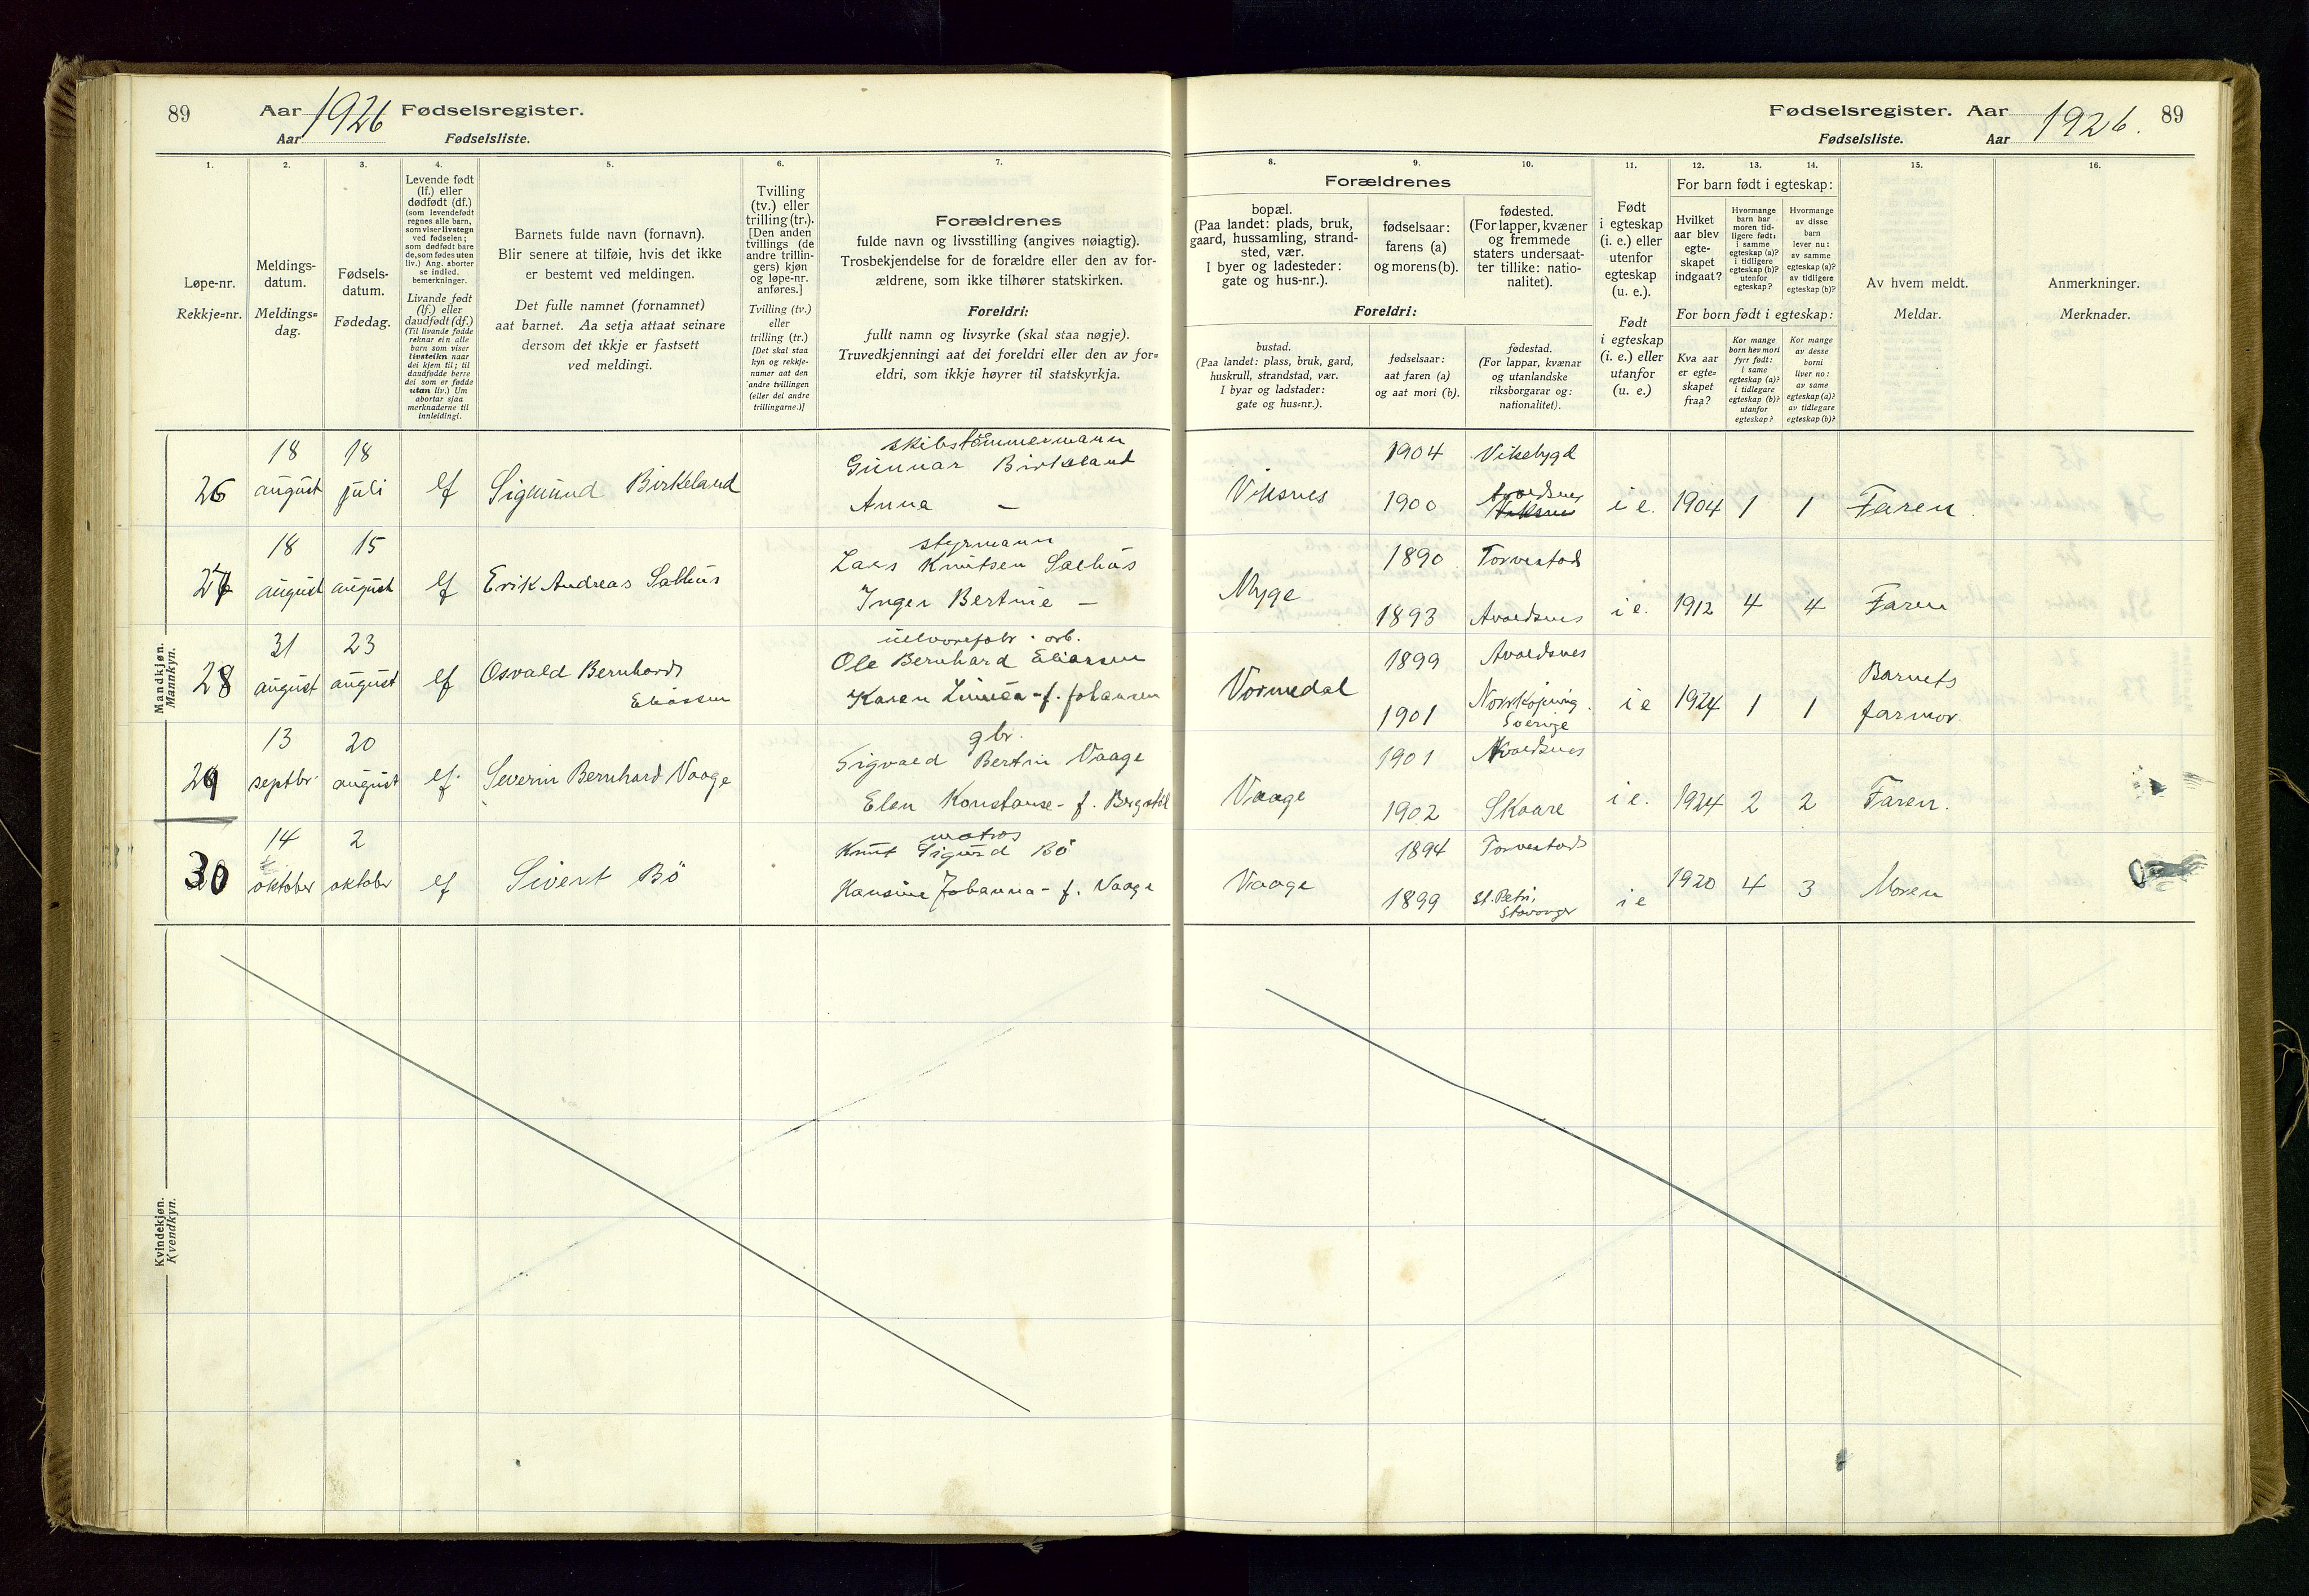 89
Aar 1926 Fødselsregister.
Aar Fødselsliste.
1.
2.
3.
4.
5.
6.
7.
Løpe-nr.
Rekkje=nr.
Meldings-
datum.
Meldings=
dag.
Fødsels-
datum.
Fødedag.
Levende født
(lf.) eller
dødfødt (df.)
(som levendefødt
regnes alle barn,
som viser livstegn
ved fødselen;
som dødfødt bare
de, som fødes uten
liv.) Ang. aborter
se indled.
bemerkninger.
Livande født
(lf.) eller
daudfødt (df.)
(Til livande fødde
reknar ein alle
barn som viser
livsteikn naar
dei kjem til; til
daudfødde berre
dei som er fødde
utan liv.) Um
abortar sjaa
merknaderne til
innleidingi.
Barnets fulde navn (fornavn).
Blir senere at tilføie, hvis det ikke
er bestemt ved meldingen.
Det fulle namnet (fornamnet)
aat barnet. Aa setja attaat seinare
dersom det ikkje er fastsett
ved meldingi.
Tvilling
(tv.) eller
trilling (tr.).
[Den anden
tvillings (de
andre trillin-
gers) kjøn
og løpe-nr.
anføres.]
Tvilling (tv.)
eller
trilling (tr.)
[Det skal staa
kyn og rekkje-
numer aat den
andre tvillingen
(eller dei andre
trillingarne.)]
Forældrenes
fulde navn og livsstilling (angives nøiagtig).
Trosbekjendelse for de forældre eller den av for-
ældrene, som ikke tilhører statskirken.
Foreldri:
fullt namn og livsyrke (skal staa nøgje).
Truvedkjenningi aat dei foreldri eller den av for=
eldri, som ikkje høyrer til statskyrkja.
Mandkjøn.
Mannkyn.
26
18
august
18
juli
lf
Sigmund Birkeland
skibstömmermann
Gunnar Birkeland
Anna —
27
18
august
15
august
lf
Erik Andreas Salhus
styrmann
Lars Knutsen Salhus
Inger Bertine —
28
31
august
23
august
lf
Osvald Bernhard
Eliassen
Ole Bernhard Eliassen
Karen Linnéa - f. Johansen
29
13
septbr.
20
august
lf.
Severin Bernhard Vaage
gbr.
Sigvald Bertin Vaage
Elen Konstanse - f.
30
14
oktober
2
oktober
lf
Sivert Bö
matros
Knut Sigurd Bö
Hansine Johanna - f. Vaage
Kvindekjøn.
Kvendkyn.
Fødselsregister. Aar 1926. 89
Fødselsliste. Aar
8.
9.
10.
11.
12.
13.
14.
15.
16.
Forældrenes
bopæl.
(Paa landet: plads, bruk,
gaard, hussamling, strand-
sted, vær.
I byer og ladesteder:
gate og hus-nr.).
fødselsaar:
farens (a)
og morens (b).
fødested.
(For lapper, kvæner
og fremmede
staters undersaat-
ter tillike: natio-
nalitet).
Foreldri:
bustad.
(Paa landet: plass, bruk, gard,
huskrull, strandstad, vær.
I byar og ladstader:
gate og hus=nr.).
fødselsaar:
aat faren (a)
og aat mori (b).
fødestad.
(For lappar, kvænar
og utanlandske
riksborgarar og:
nationalitet).
Født
i egteskap
(i. e.) eller
utenfor
egteskap
(u. e.).
Født
i egteskap
(i. e.) eller
utanfor
(u. e.)
For barn født i egteskap:
Hvilket
aar blev
egte-
skapet
indgaat?
Hvormange
barn har
moren tid-
ligere født:
i samme
egteskap (a)?
i tidligere
egteskap (b)?
utenfor
egteskap?
Hvormange
av disse
barn
lever nu:
av samme
egteskap (a)?
av tidligere
egteskap (b)?
For born født i egteskap:
Kva aar
er egte=
skapet
fraa?
Kor mange
born hev mori
fyrr født:
i same
egteskap (a)?
i tidlegare
egteskap (b)?
utanfor
egteskap?
Kor mange
av desse
borni
liver no:
av same
egteskap (a)?
av tidlegare
egteskap (b)?
Av hvem meldt.
Meldar.
Anmerkninger.
Merknader.
Viksnes
1904
Vikebygd
1900
Avaldsnes
i e.
1904
1
1
Faren
Myge
1890
Torvestad
1893
Avaldsnes
i e.
1912
4
4
Faren
Vormedal
1899
Avaldsnes
1901
Norrköping
Sverige
i e
1924
1
1
Barnets
farmor.
Vaage
1901
Avaldsnes
1902
Skaare
i e.
1924
2
2
Faren.
Vaage
1894
Torvestad
1899
St. Petri,
Stavanger
i e
1920
4
3
Moren